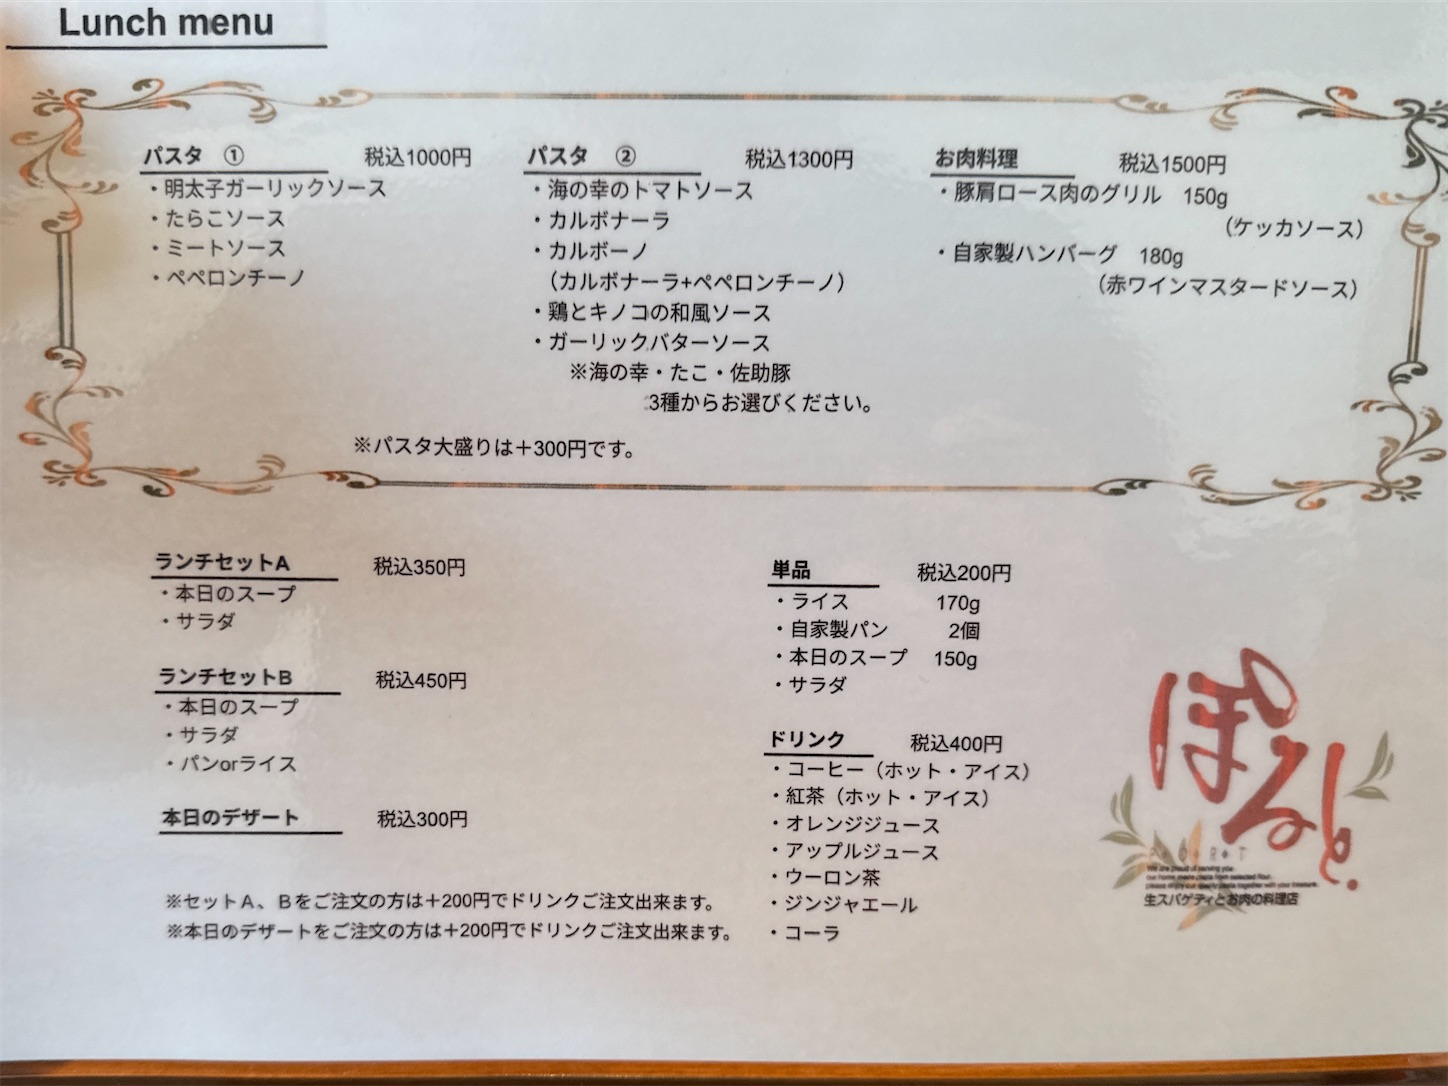 Lunch menu
パスタ　① 税込1000円
・明太子ガーリックソース
・たらこソース
・ミートソース
・ペペロンチーノ
パスタ　② 税込1300円
・海の幸のトマトソース
・カルボナーラ
・カルボーノ
（カルボナーラ+ペペロンチーノ）
・鶏とキノコの和風ソース
・ガーリックバターソース
※海の幸・たこ・佐助豚
3種からお選びください。
お肉料理 税込1500円
・豚肩ロース肉のグリル　150g
（ケッカソース）
・自家製ハンバーグ　180g
（赤ワインマスタードソース）
※パスタ大盛りは＋300円です。
ランチセットA 税込350円
・本日のスープ
・サラダ
ランチセットB 税込450円
・本日のスープ
・サラダ
・パンorライス
本日のデザート 税込300円
※セットＡ、Ｂをご注文の方は＋200円でドリンクご注文出来ます。
※本日のデザートをご注文の方は＋200円でドリンクご注文出来ます。
単品 税込200円
・ライス 170g
・自家製パン 2個
・本日のスープ 150g
・サラダ
ドリンク 税込400円
・コーヒー（ホット・アイス）
・紅茶（ホット・アイス）
・オレンジジュース
・アップルジュース
・ウーロン茶
・ジンジャエール
・コーラ
ぽると
We are proud of serving you
our home made pasta from selected flour.
please enjoy our quality pasta together with your treasure.
生スパゲティとお肉の料理店